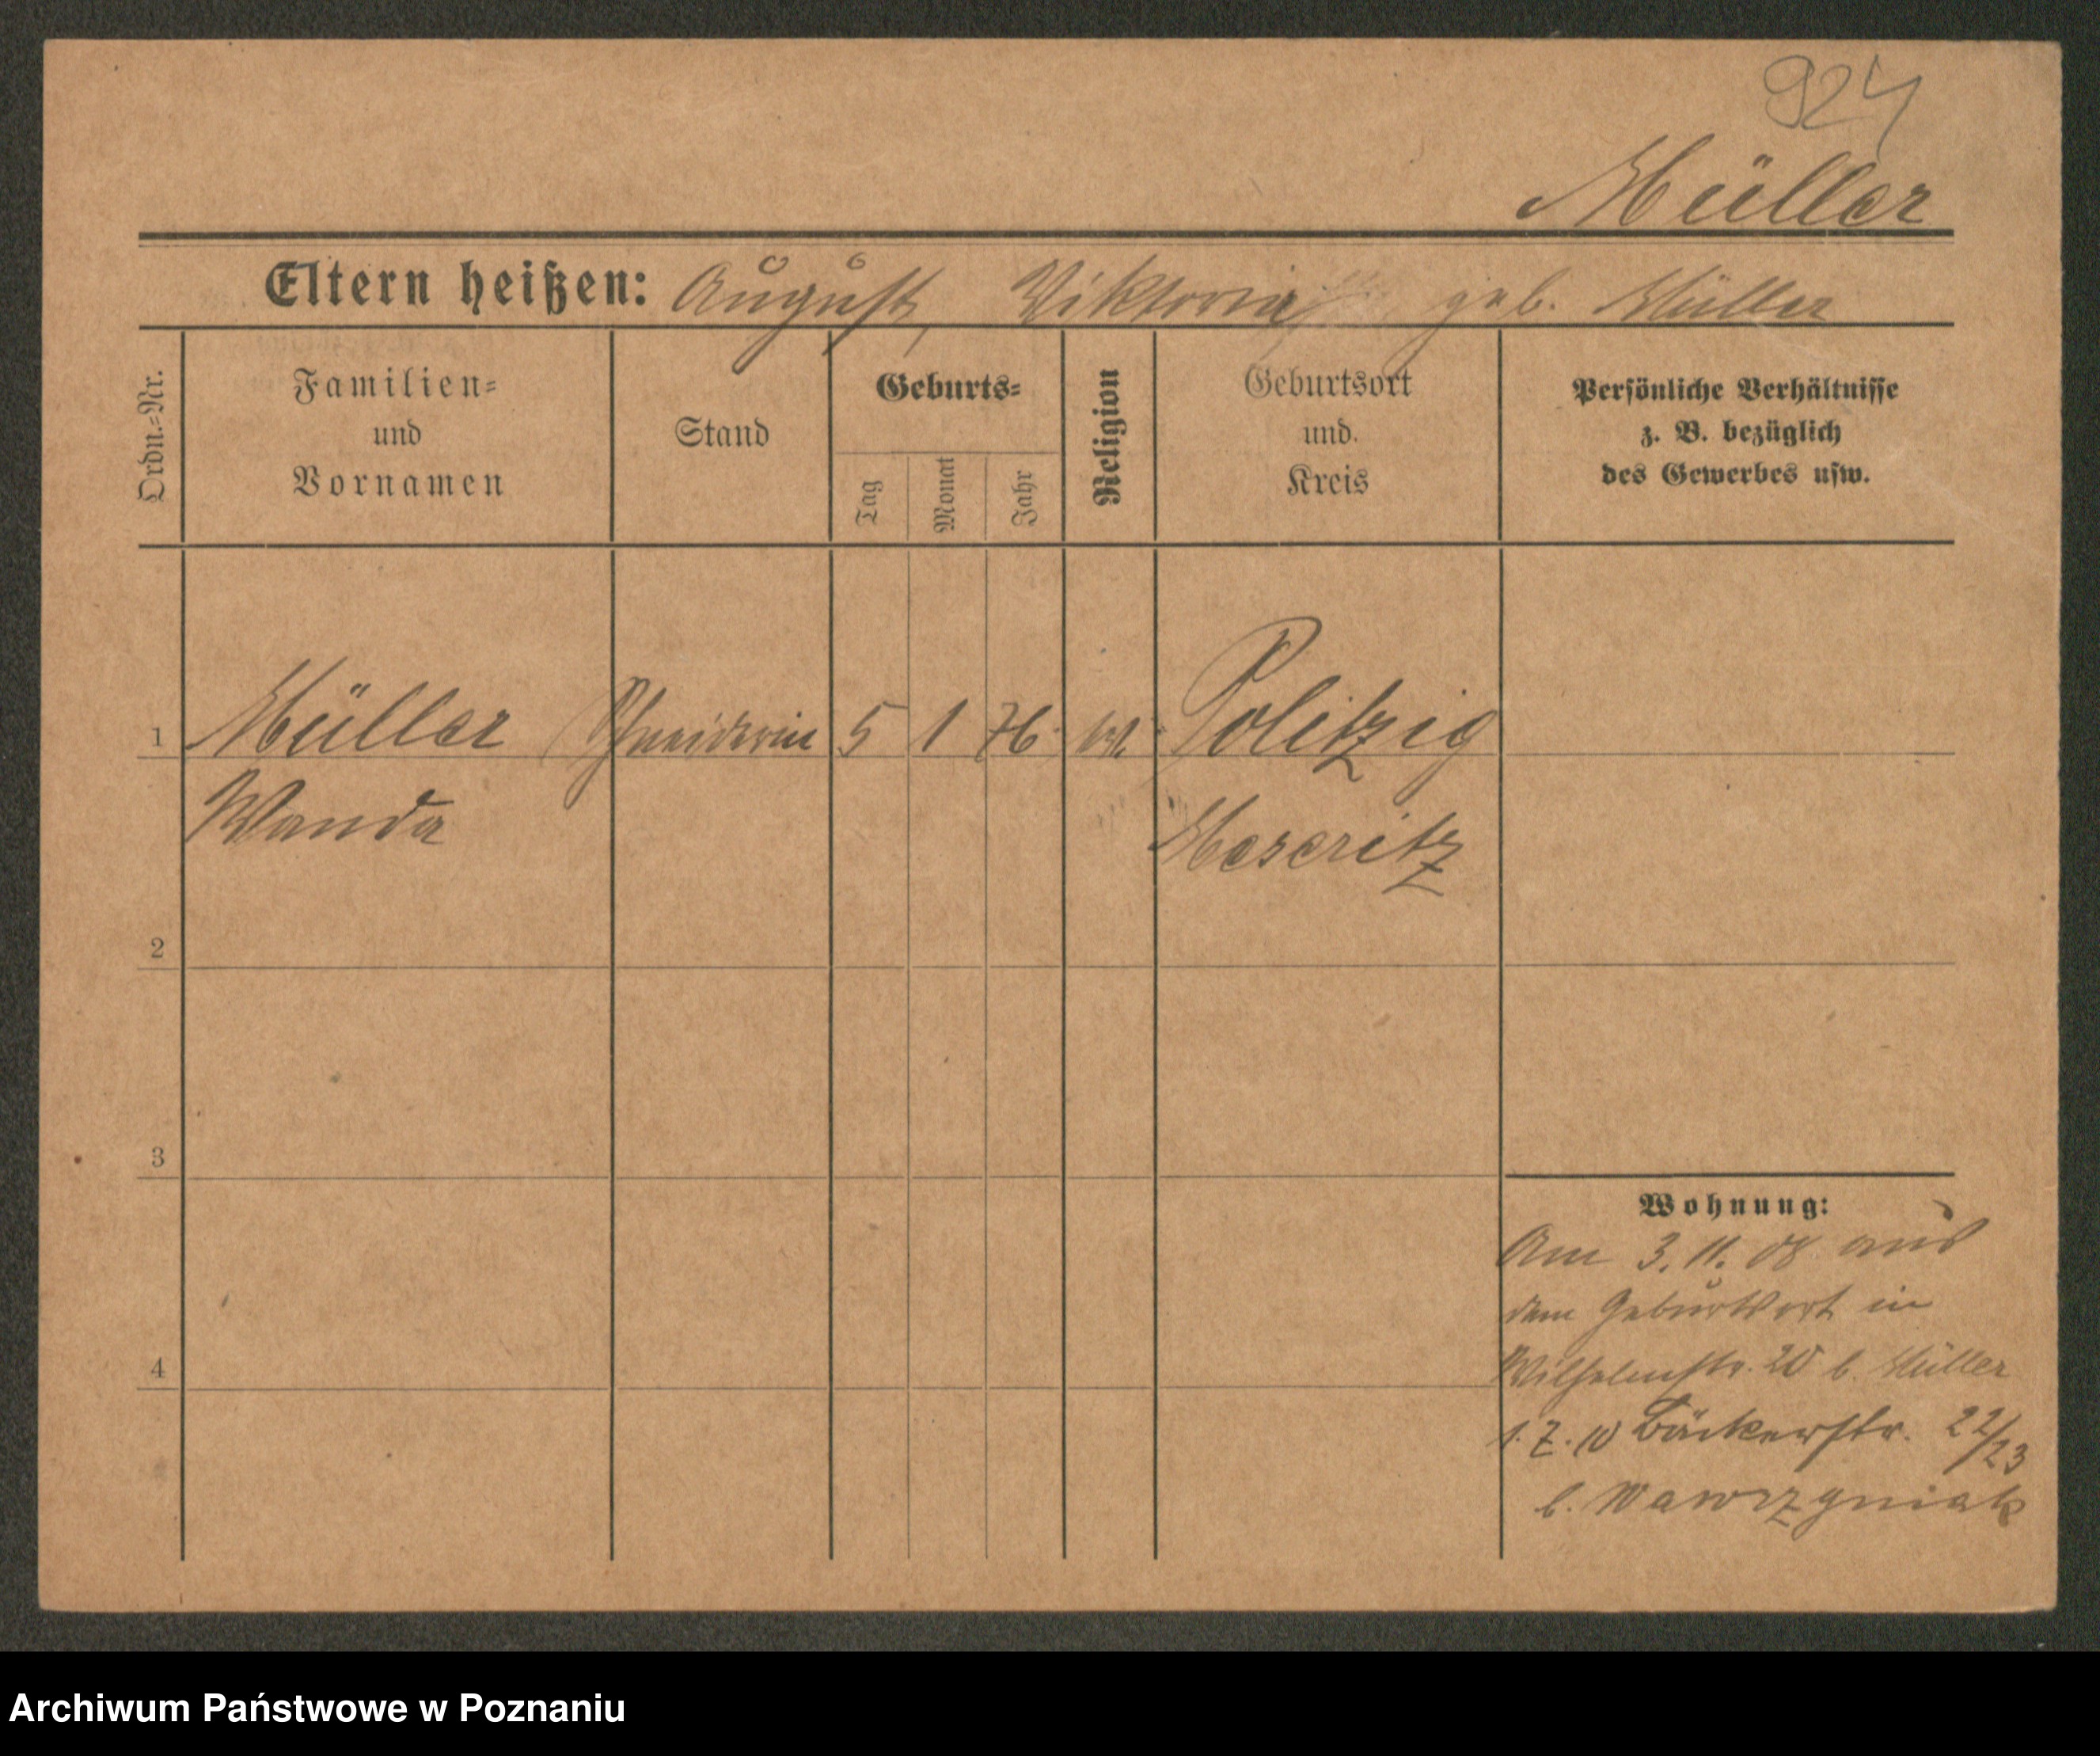 924
Müller
Eltern heißen: August, Viktoria geb. Müller
Ordn.-Nr.
Familien-
und
Vornamen
Stand
Geburts-
Tag
Monat
Jahr
Religion
Geburtsort
und
Kreis
Persönliche Verhältnisse
z. B. bezüglich
des Gewerbes usw.
1 Müller Schneiderin 5 1 76 Politzig
Wanda Meseritz
2
3
4
Wohnung:
Am 3. 11. 08 aus
dem Geburtsort in
Wilhelmstr. 20 b. Müller
1. 7. 10 Bäckerstr. 22/23
b. Wawrzyniak
Archiwum Państwowe w Poznaniu